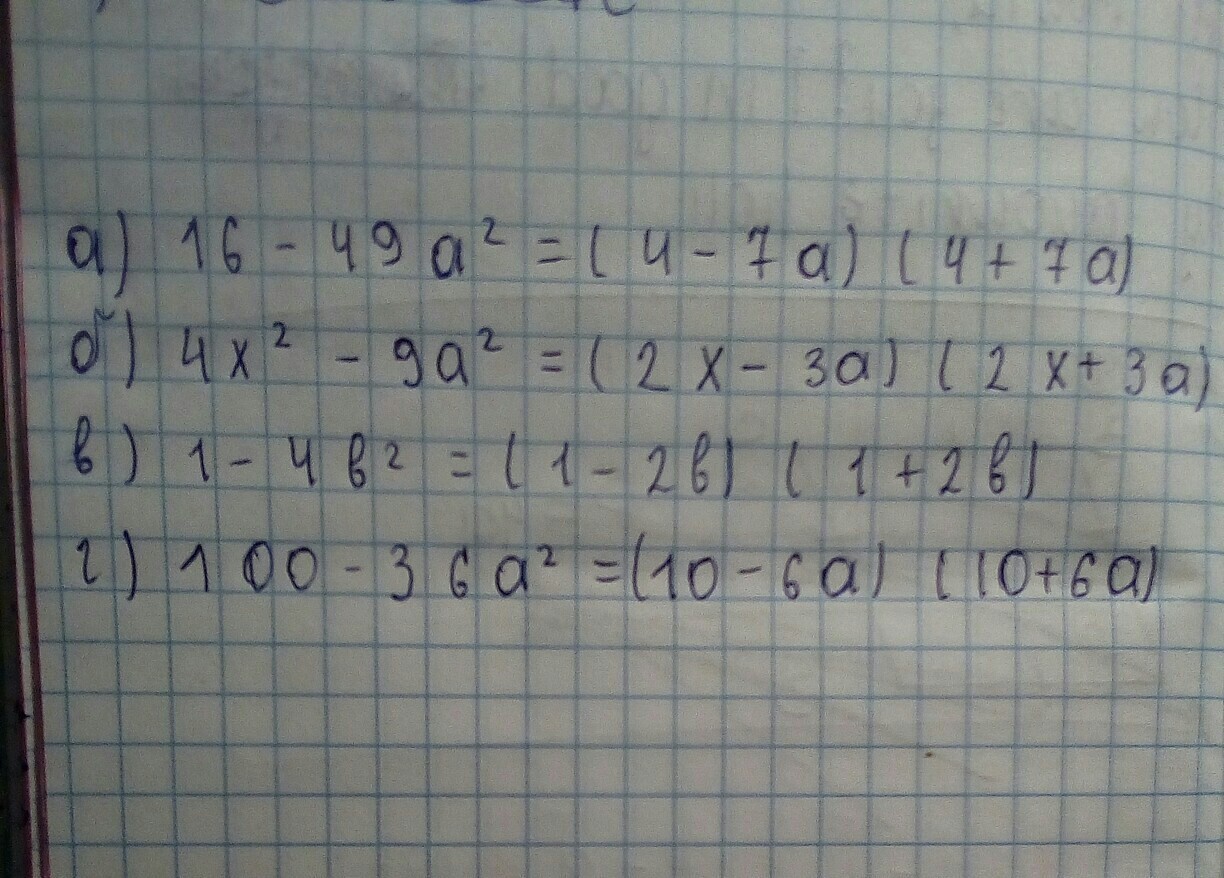 а) 16 - 49a² = (4 - 7a) (4 + 7a)
б) 4x² - 9a² = (2x - 3a) (2x + 3a)
в) 1 - 4в² = (1 - 2в) (1 + 2в)
г) 100 - 36a² = (10 - 6a) (10 + 6a)